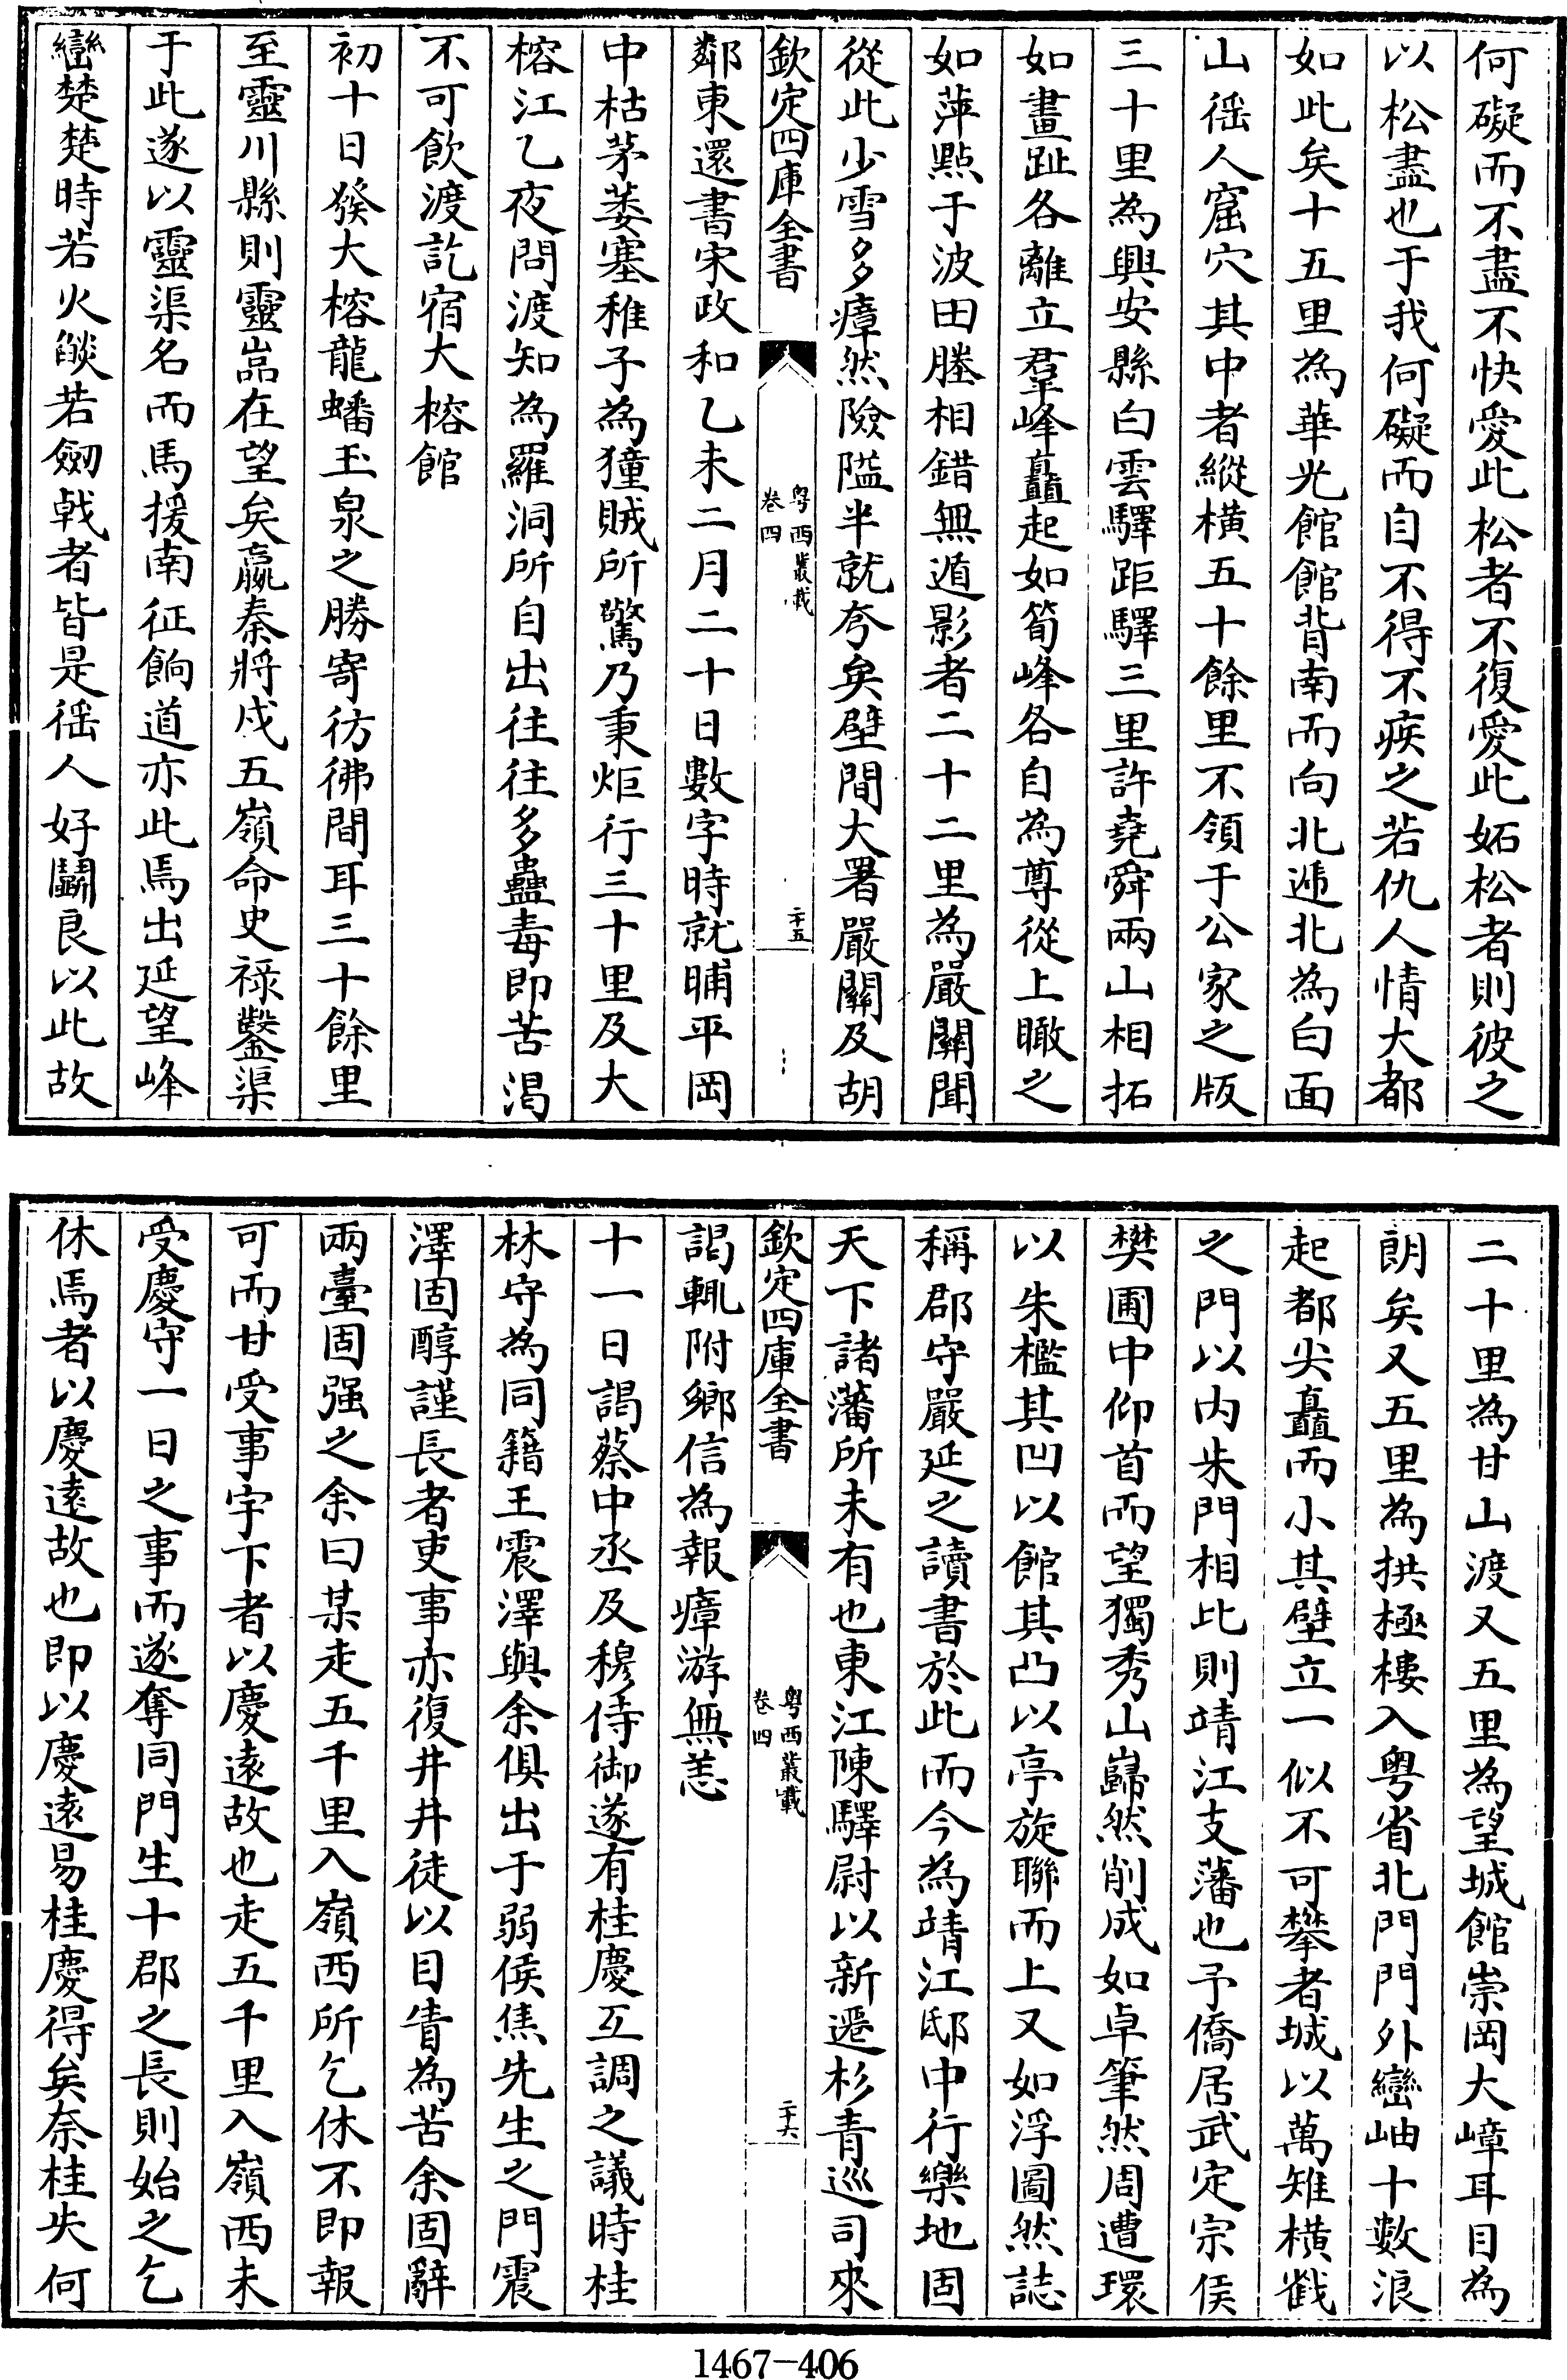 何礙而不盡不快愛此松者不復愛此妬松者則彼之
以松盡也于我何礙而自不得不疾之若仇人情大都
如此矣十五里為華光館館背南而向北逓北為白面
山徭人窟穴其中者縱橫五十餘里不領于公家之版
三十里為興安縣白雲驛距驛三里許堯舜兩山相拓
如畫趾各離立羣峰矗起如筍峰各自為尊從上瞰之
如萍㸃于波田塍相錯無遁影者二十二里為嚴關聞
從此少雪多瘴然險隘半就夸矣壁間大署嚴關及胡
欽定四庫全書
粵西叢載
卷四
二十五
鄰東還書宋政和乙未二月二十日數字時就晡平岡
中枯茅蔞塞稚子為獞賊所驚乃秉炬行三十里及大
榕江乙夜問渡知為羅洞所自出往往多蠱毒即苦渴
不可飲渡訖宿大榕館
初十日發大榕龍蟠玉泉之勝寄彷彿間耳三十餘里
至靈川縣則靈嵓在望矣嬴秦將戍五嶺命史祿鑿渠
于此遂以靈渠名而馬援南征餉道亦此焉出延望峰
巒楚楚時若火燄若劒戟者皆是徭人好鬭良以此故
二十里為甘山渡又五里為望城館崇岡大嶂耳目為
朗矣又五里為拱極樓入粵省北門門外巒岫十數浪
起都尖矗而小其壁立一似不可攀者城以萬雉橫截
之門以内朱門相比則靖江支藩也予僑居武定宗侯
樊圃中仰首而望獨秀山巋然削成如卓筆然周遭環
以朱檻其凹以館其凸以亭旋聯而上又如浮圖然誌
稱郡守嚴延之讀書於此而今為靖江邸中行樂地固
天下諸藩所未有也東江陳驛尉以新遷杉青巡司來
欽定四庫全書
粵西叢載
卷四
二十六
謁輒附鄉信為報瘴游無恙
十一日謁蔡中丞及穆侍御遂有桂慶互調之議時桂
林守為同籍王震澤與余俱出于弱侯焦先生之門震
澤固醇謹長者吏事亦復井井徒以目眚為苦余固辭
兩臺固强之余曰某走五千里入嶺西所乞休不即報
可而甘受事宇下者以慶遠故也走五千里入嶺西未
受慶守一日之事而遂奪同門生十郡之長則始之乞
休焉者以慶遠故也即以慶遠易桂慶得矣奈桂失何
1467-406